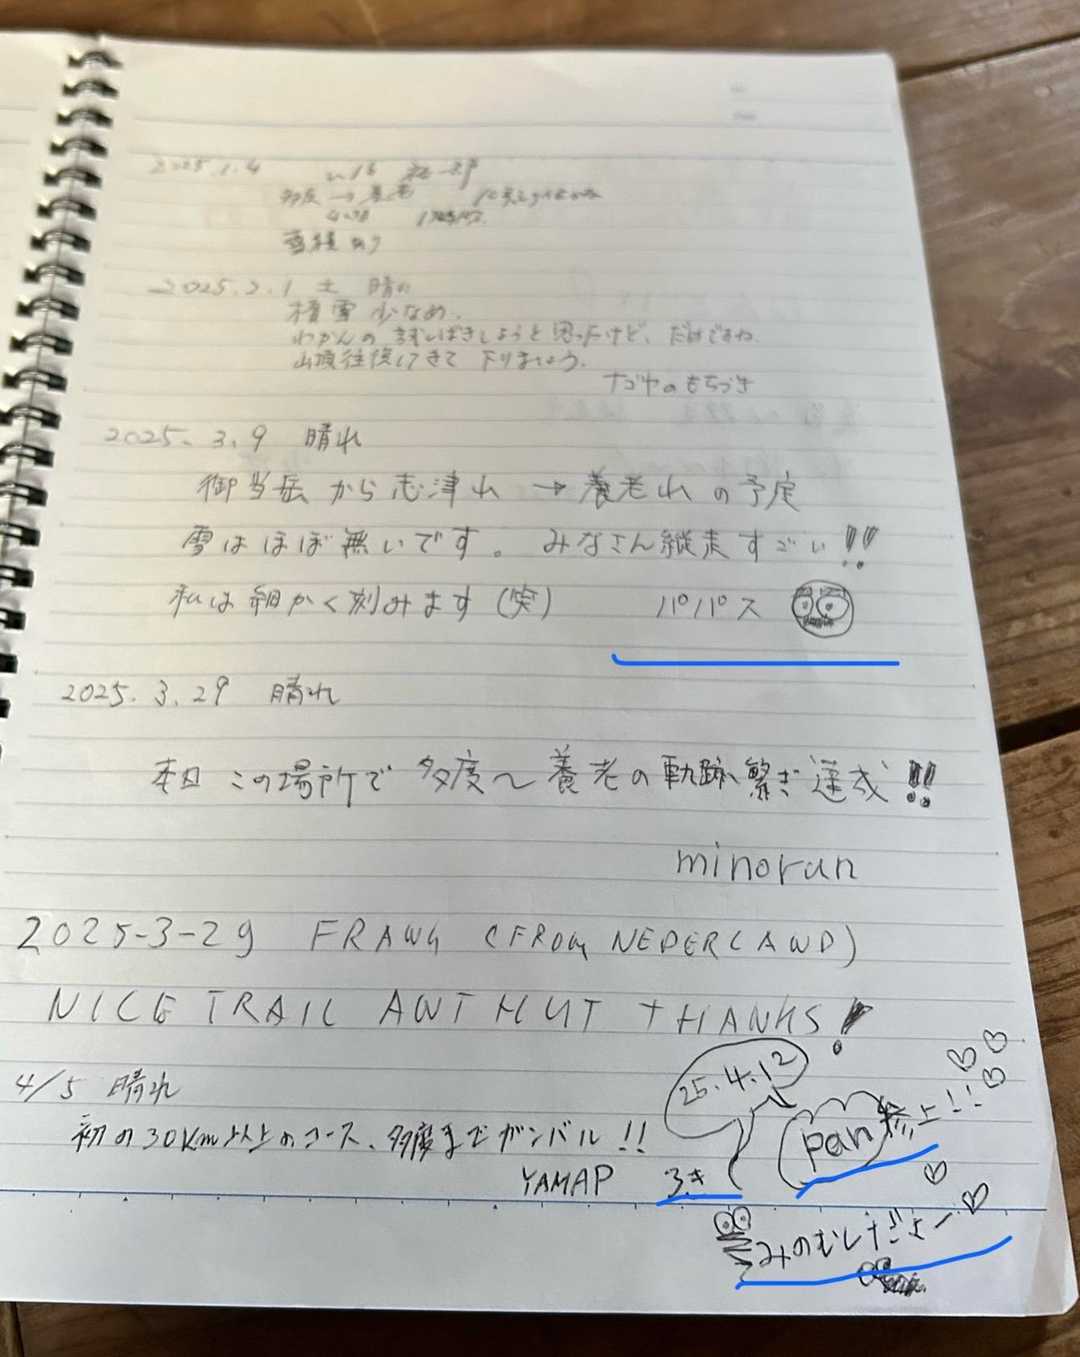 2025.1.4
多度 → 養老
雪積あり
2025.2.1 土 晴れ
積雪少なめ。
わかんの試しばきしようと思ったけど、だけですね
山頂往復してきて下りましょう。
ナゴヤのもちづき
2025.3.9 晴れ
御当岳から志津れ → 養老れの予定
雪はほぼ無いです。みなさん縦走すごい!!
私は細かく刻みます(笑) パパス
2025.3.29 晴れ
本日この場所で多度〜養老の軌跡繋ぎ達成!!
minorun
2025-3-29 FRAWG (FROM NEDERLAWD)
NICE TRAIL AWT HUT THANKS!
4/5 晴れ
初の30km以上のコース、多度までガンバル!!
YAMAP ろき
25.4.12
pan参上!!
みのむしだよー